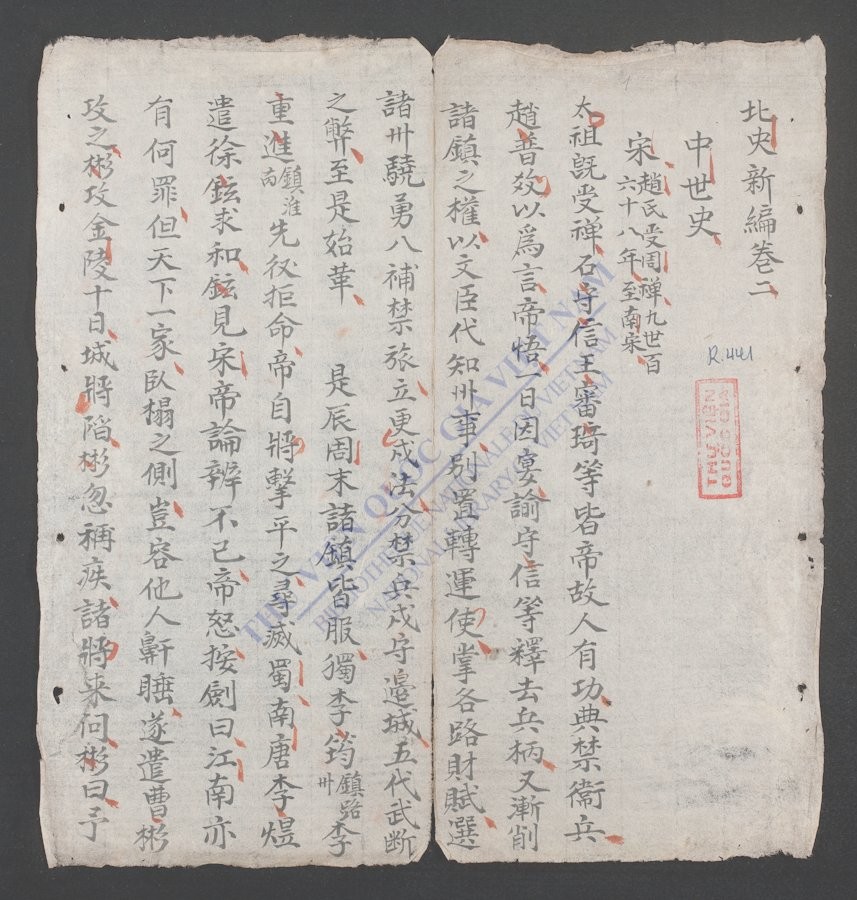 北史新編卷二
中世史
宋 趙氏受周禪九世百六十八年至南宋
太祖既受禪石守信王審琦等皆帝故人有功典禁衞兵
趙普效以爲言帝悟一日因宴諭守信等釋去兵柄又漸削
諸鎮之權以文臣代知州事别置轉運使掌各路財賦選
諸卅驍勇入補禁旅立更戍法分禁兵戍守邉城五代武断
之弊至是始革 是辰周末諸鎮皆服獨李筠鎮路卅李
重進鎮淮南先後拒命帝自將擊平之尋滅蜀南唐李煜
遣徐鉉求和鉉見宋帝論辨不已帝怒按劍曰江南亦
有何罪但天下一家臥榻之側豈容他人鼾睡遂遣曹彬
攻之彬攻金陵十日城將陷彬忽稱疾諸將来问彬曰予
R.441
THƯ VIỆN QUỐC GIA VIỆT NAM
BIBLIOTHÈQUE NATIONALE DU VIETNAM
NATIONAL LIBRARY OF VIETNAM